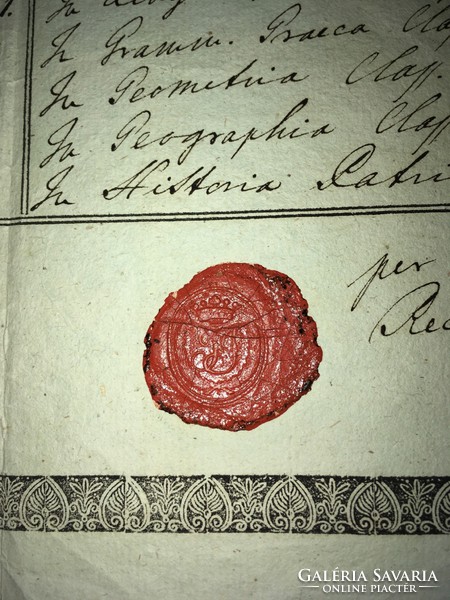 In Gramm. Graeca Clas
In Geometria Class.
In Geographia Class
In Historia Patri
per
Rec
GALÉRIA SAVARIA
ONLINE PIACTÉR